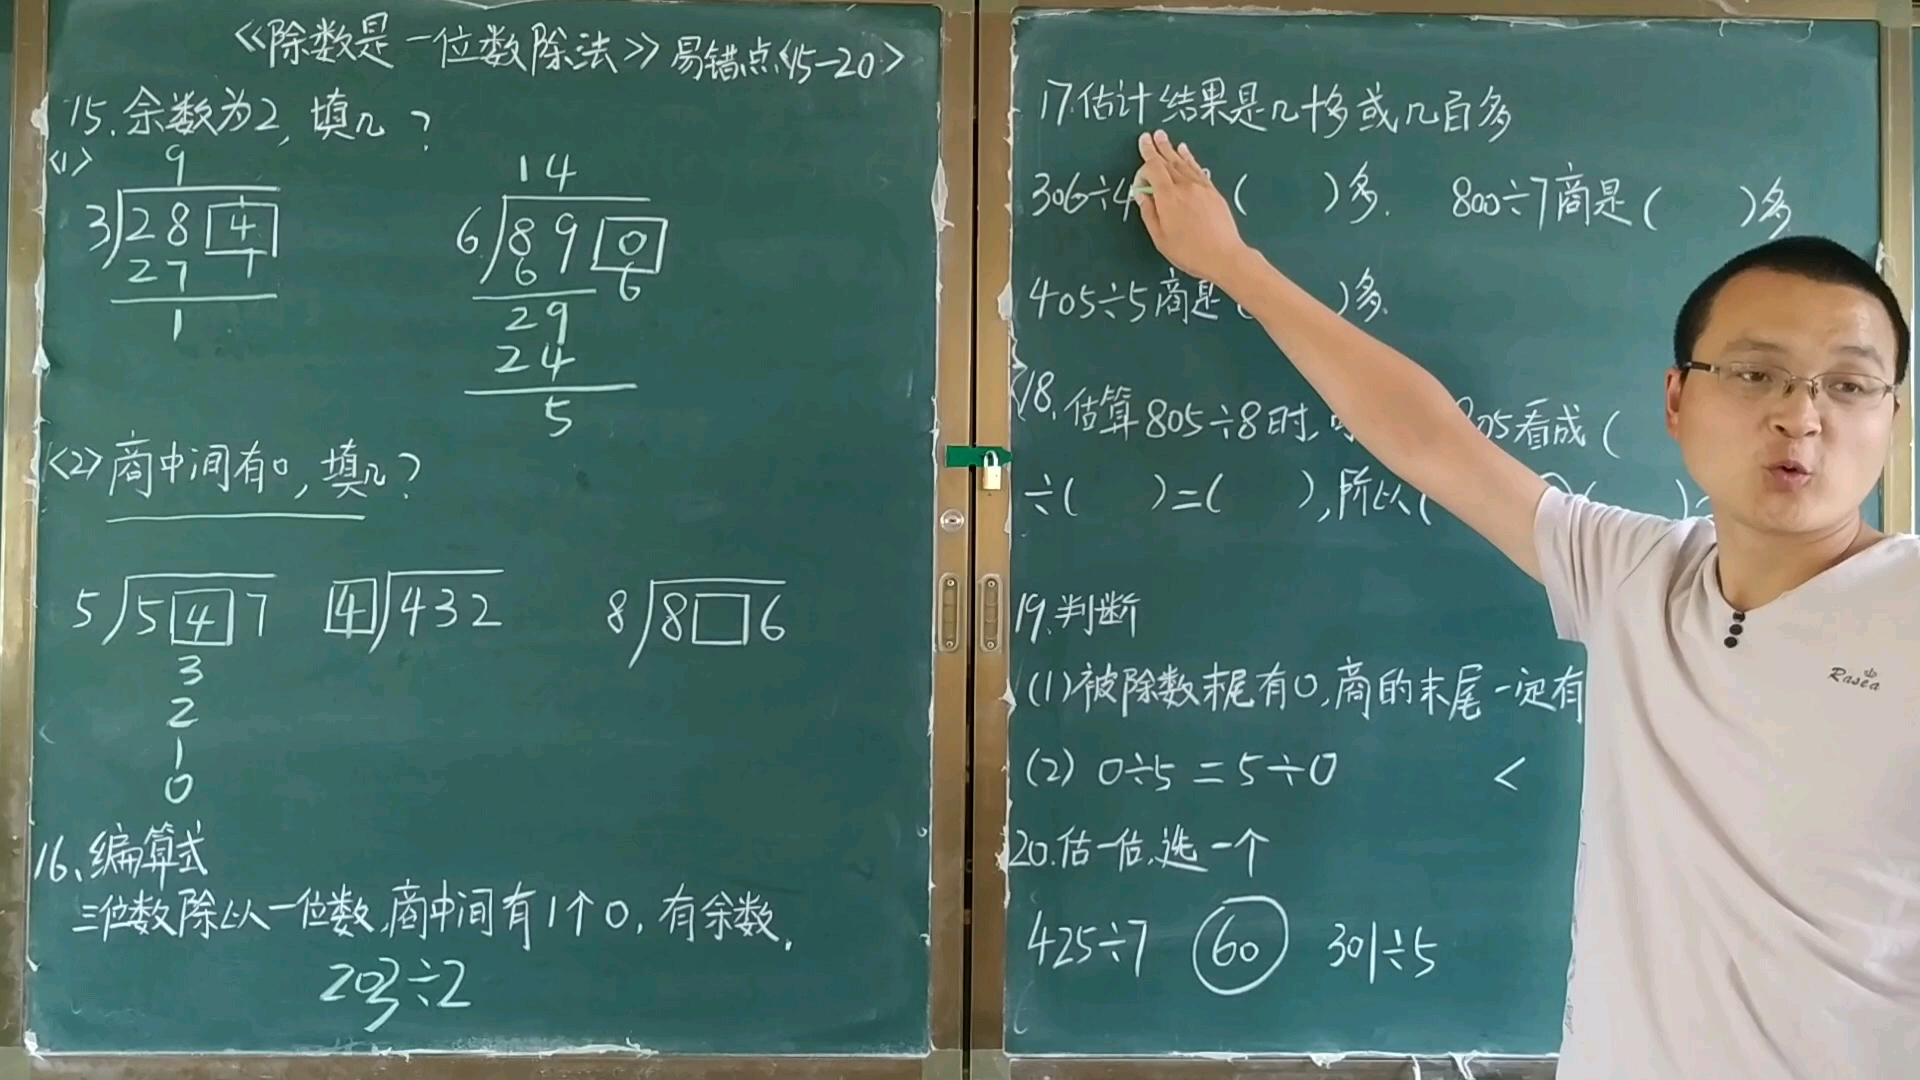 《除数是一位数除法》易错点<15—20>
15.余数为2,填几?
<1>
9
3 28 4
27 7
1
14
6 89 0
6 6
29
24
5
<2>商中间有0,填几?
5 5 4 7
3
2
1
0
4 432
8 8 □ 6
16、编算式
三位数除以一位数,商中间有1个0,有余数.
203÷2
17.估计结果是几十多或几百多
306÷4 ( )多. 800÷7商是( )多
405÷5商是( )多.
18.估算805÷8时, 05看成(
÷( )=( ),所以( ( )
19.判断
(1)被除数末尾有0,商的末尾一定有
(2) 0÷5=5÷0 <
20.估一估,选一个
425÷7 60 301÷5
Rasea